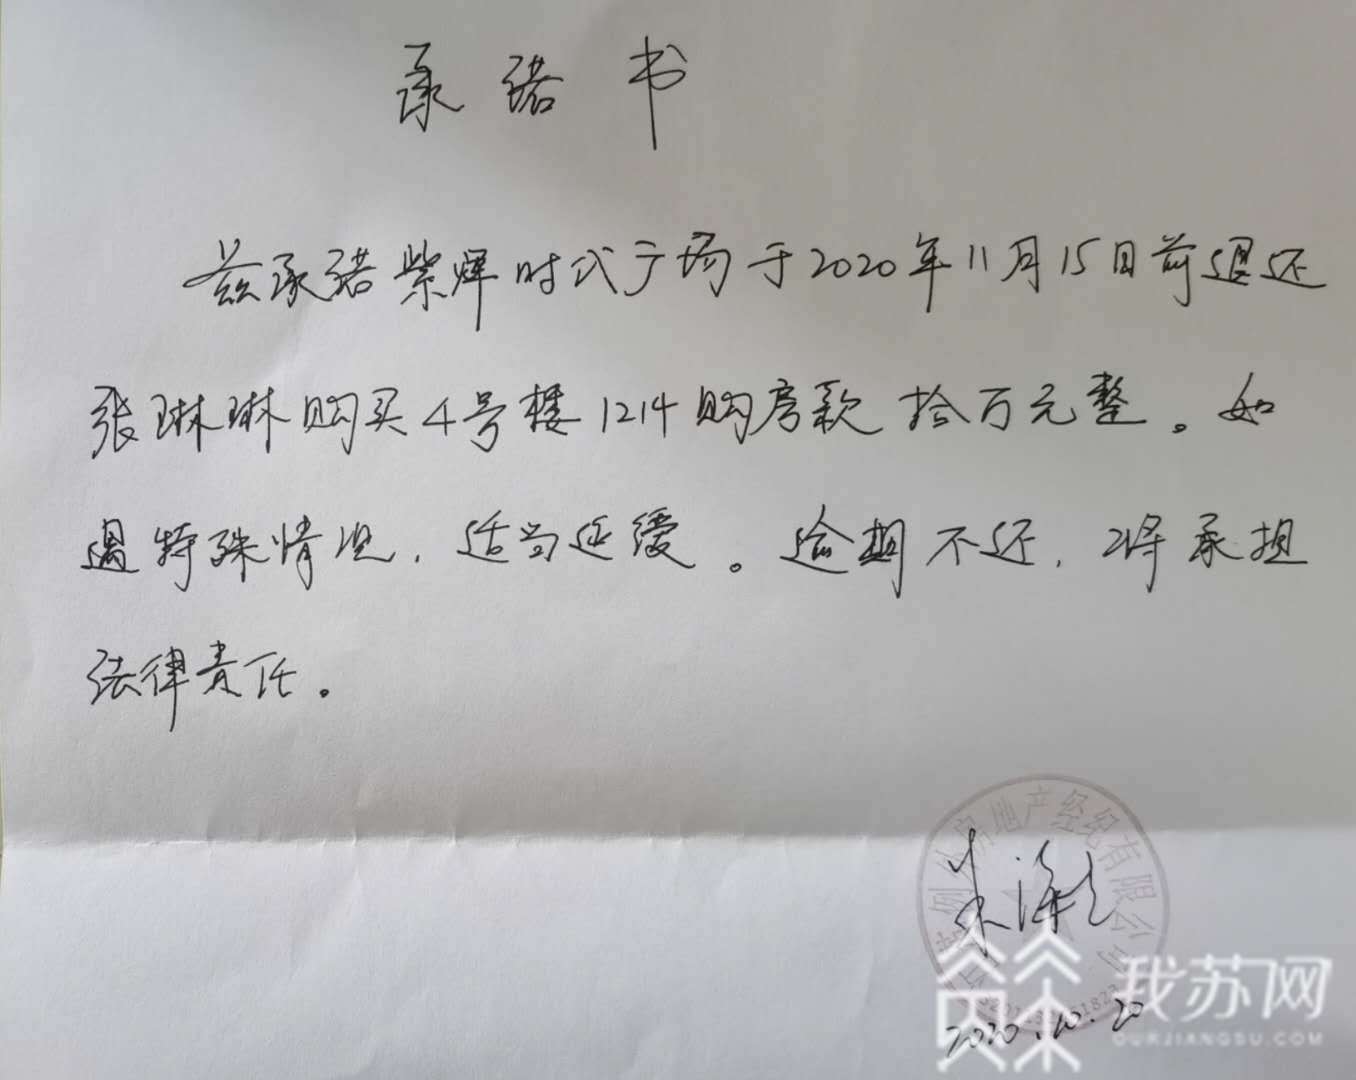 承诺书
兹承诺紫辉时代广场于2020年11月15日前退还
张琳琳购买4号楼1214购房款拾万元整。如
遇特殊情况,适当延缓。逾期不还,将承担
法律责任。
房地产经纪有限公司
朱
2020.10.20
我苏网
OURJIANGSU.COM